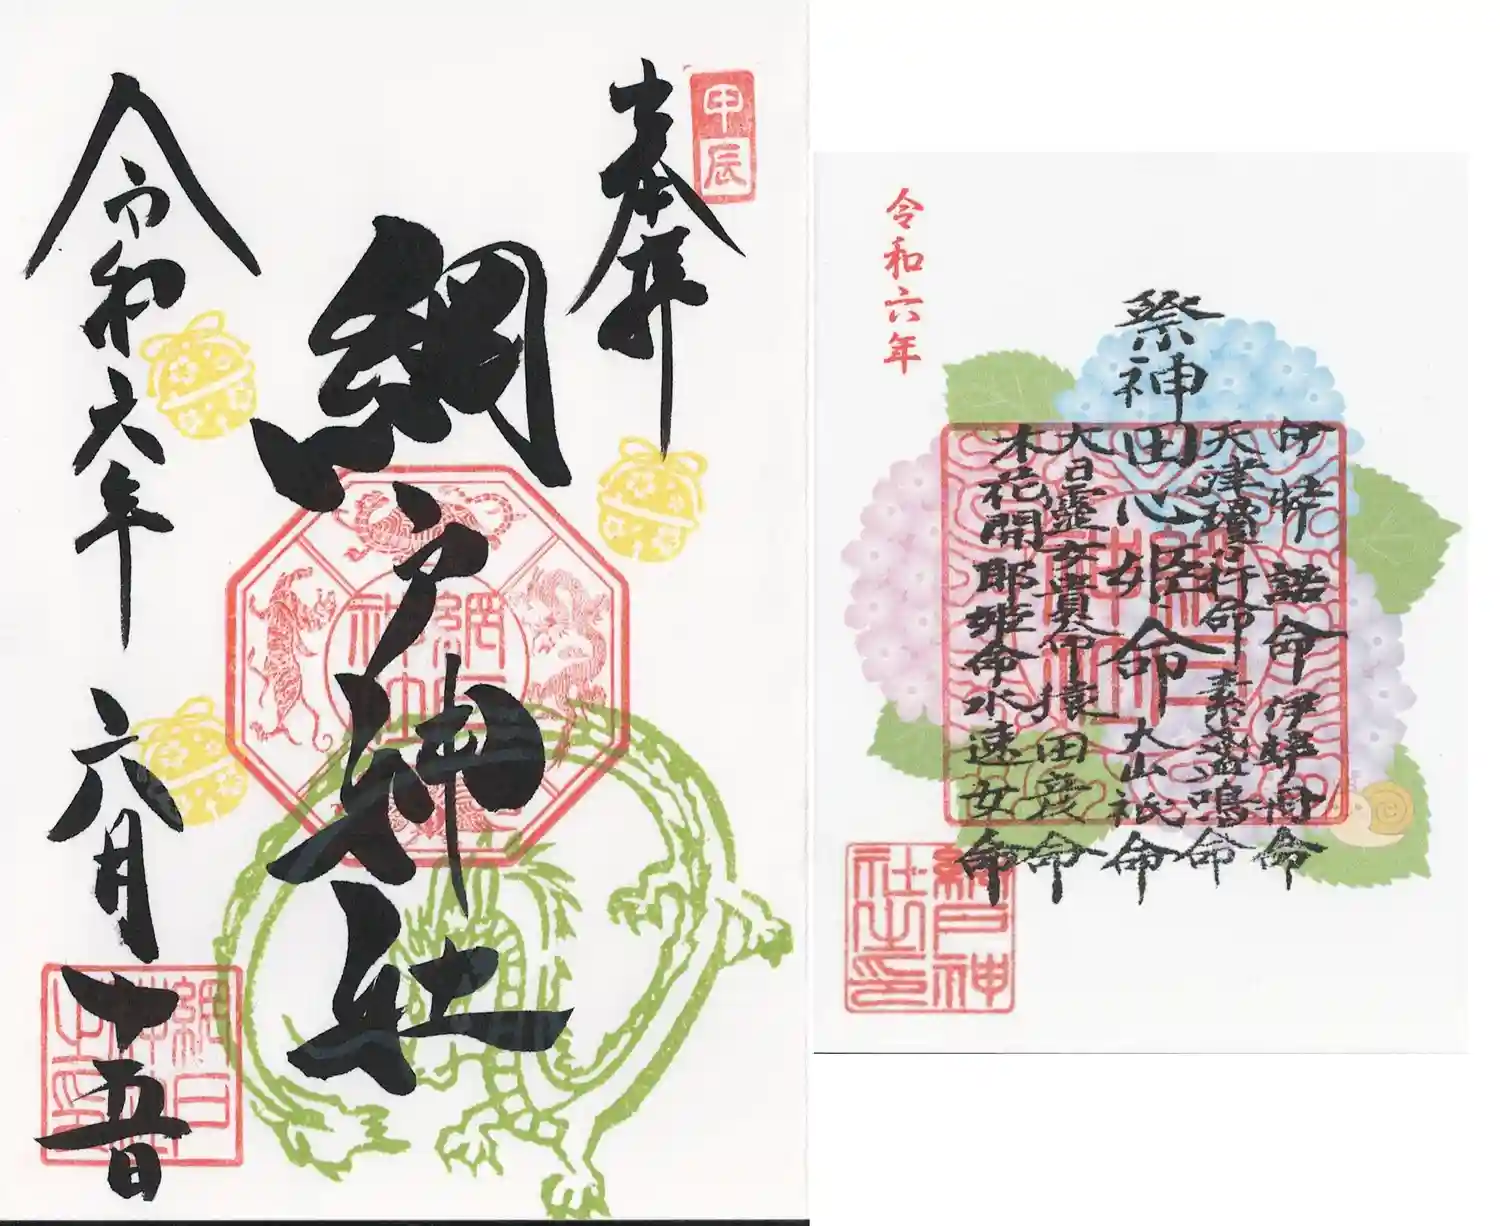 甲辰
奉拝
網戸神社
令和六年 六月十五日
網戸神社
令和六年
祭神
伊弉諾命 伊弉冉命
天津瓊瓊杵命 素盞嗚命
田心姫命 大山祇命
大日孁女貴命 猿田彦命
木花開耶姫命 水速女命
網戸神社之印